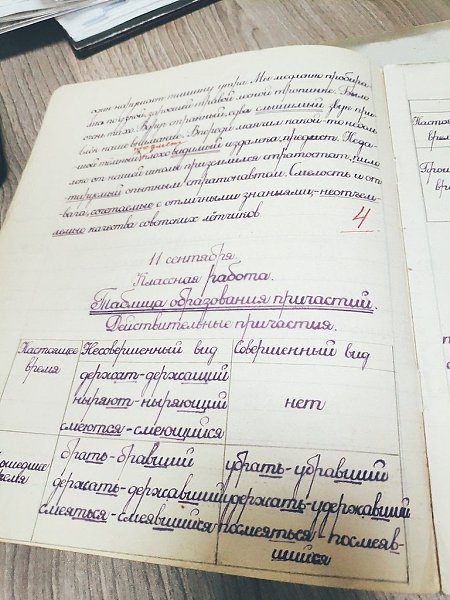 нарушает тишину утра. Мы медленно пробира-
лись по узкой, заросшей травой лесной тропинке. Было
очень тихо. Вдруг странный, едва слышимый звук при-
влёк наше внимание. Впереди маячил какой-то неболь-
шой тёмный, плохо видимый издалека предмет. Неда-
леко от нашей школы приземлился стратостат, пило-
тируемый опытным стратонавтом. Смелость и от-
вага, сочетаемые с отличными знаниями, - неотъем-
лемые качества советских лётчиков.
4
11 сентября.
Классная работа.
Таблица образования причастий.
Действительные причастия.
Настоящее время
Несовершенный вид
Совершенный вид
держат - держащий
ныряют - ныряющий
смеются - смеющийся
нет
Прошедшее время
брать - бравший
держать - державший
смеяться - смеявшийся
убрать - убравший
удержать - удержавший
посмеяться - посмеяв-
шийся
Настоя
врем
Прош
вре